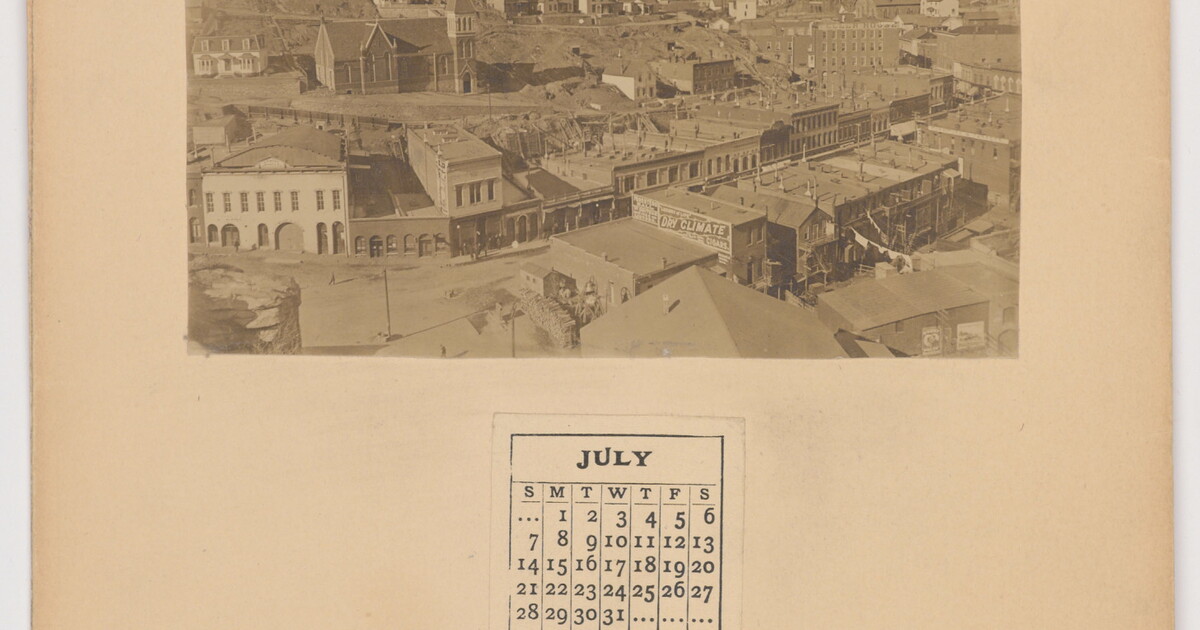 DRY CLIMATE
CIGARS
JULY
S M T W T F S
... 1 2 3 4 5 6
7 8 9 10 11 12 13
14 15 16 17 18 19 20
21 22 23 24 25 26 27
28 29 30 31 ... ... ...